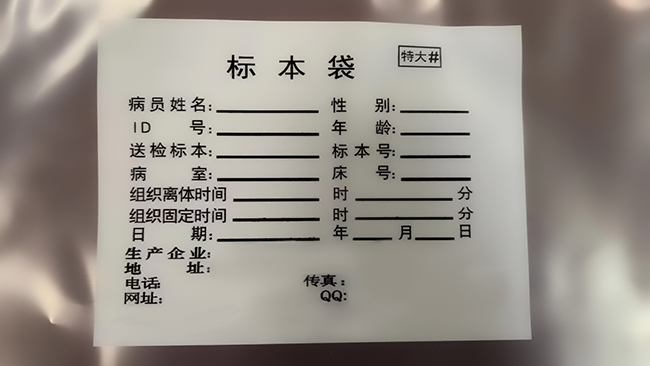 标本袋 特大#
病员姓名: 性别:
ID号: 年龄:
送检标本: 标本号:
病室: 床号:
组织离体时间 时 分
组织固定时间 时 分
日期: 年 月 日
生产企业:
地址:
电话: 传真:
网址: QQ: